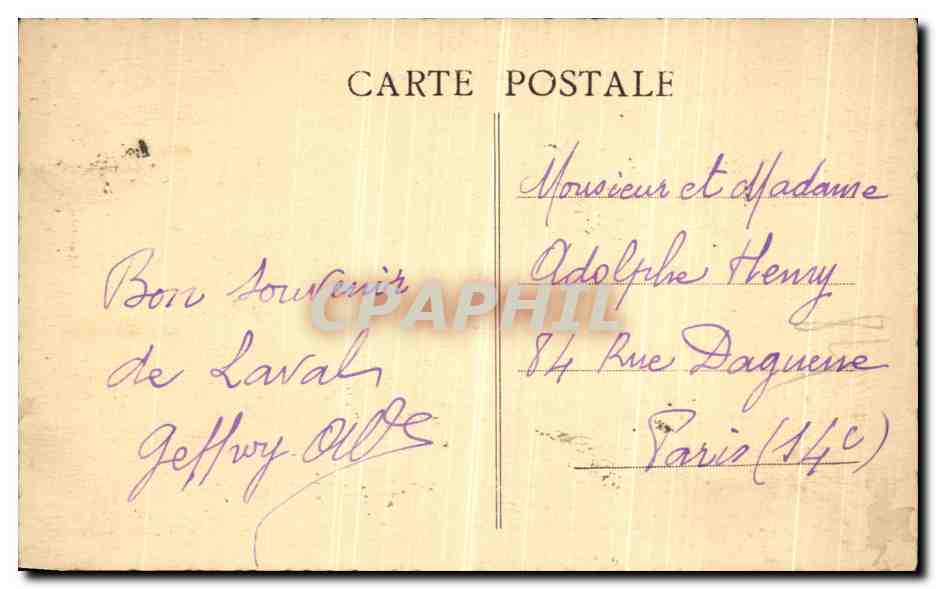 CARTE POSTALE
Bon souvenir
de Laval
Geffroy
Monsieur et Madame
Adolphe Henry
84 Rue Daguerre
Paris (14e)
CPAPHIL